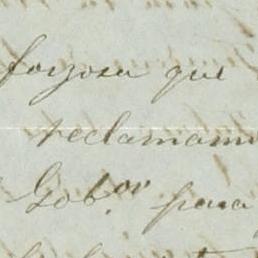 forzosa que
reclamamo
Gob.or para